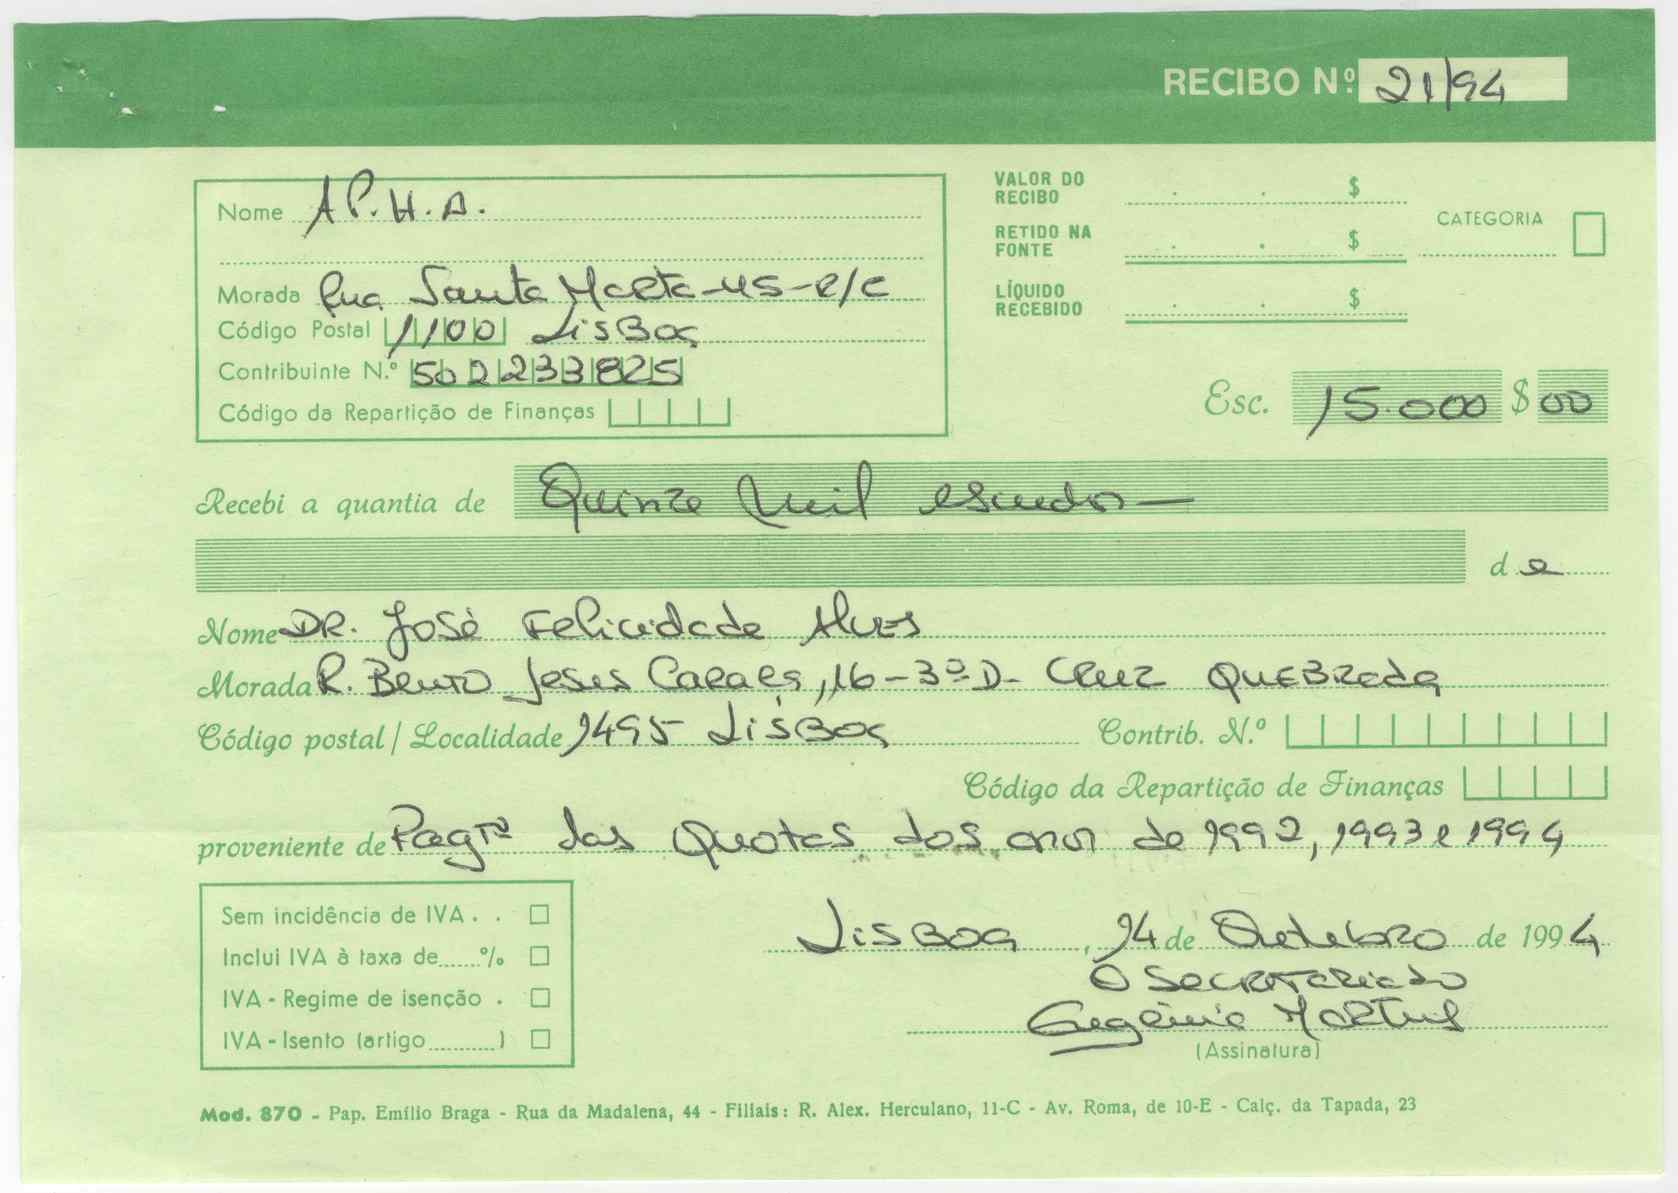 RECIBO Nº 21/94
Nome A P. H. A.
Morada Rua Santa Marta-45-R/C
Código Postal 1100 Lisboa
Contribuinte N.º 502233825
Código da Repartição de Finanças
VALOR DO RECIBO . . $
RETIDO NA FONTE . . $
LÍQUIDO RECEBIDO . . $
CATEGORIA
Esc. 15.000 $ 00
Recebi a quantia de Quinze mil escudos —
de
Nome DR. José Felicidade Alves
Morada R. Bento Jesus Caraça, 16-3º D- Cruz Quebrada
Código postal / Localidade 1495 Lisboa Contrib. N.º
Código da Repartição de Finanças
proveniente de Pagtº das Quotas dos anos de 1992, 1993 e 1994
Sem incidência de IVA . .
Inclui IVA à taxa de......%
IVA - Regime de isenção .
IVA - Isento (artigo..........)
Lisboa, 14 de Outubro de 1994
O Secretariado
Eugénia Martins
(Assinatura)
Mod. 870 - Pap. Emílio Braga - Rua da Madalena, 44 - Filiais: R. Alex. Herculano, 11-C - Av. Roma, de 10-E - Calç. da Tapada, 23